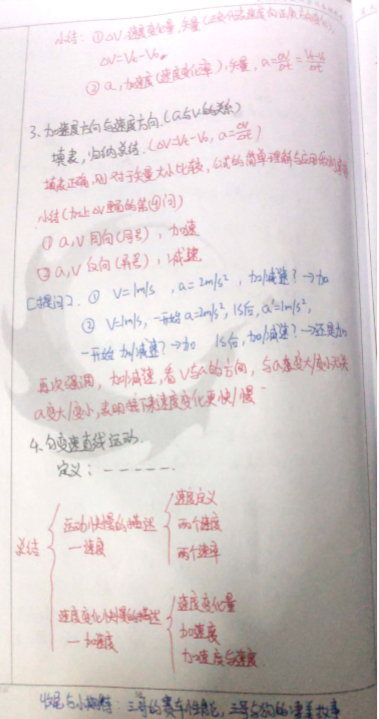 小结：① ΔV，速度变化量，矢量
ΔV=Vt-V₀
② a，加速度（速度变化率），矢量，a=ΔV/Δt=(Vt-V₀)/Δt
3. 加速度方向与速度方向.（a与V的关系）
填表，归纳总结.（ΔV=Vt-V₀，a=ΔV/Δt）
填表正确，则对于矢量大小比较，公式的简单理解与应用
小结（加上ΔV 的第④问）
① a，V同向（同号），加速
② a，V反向（异号），减速
[提问]2. ① V=1m/s，a=2m/s²，加/减速？→加
② V=1m/s，一开始a=2m/s²，1s后，a'=1m/s²，
一开始加/减速？→加 1s后，加/减速？→还是加
再次强调，加/减速，看V与a的方向，与a变大/变小无关
a变大/变小，表明接下来速度变化更快/慢
4. 匀变速直线运动.
定义：－－－－－.
总结
运动快慢的描述
—速度
速度定义
两个速度
两个速率
速度变化快慢的描述
—加速度
速度变化量
加速度
加速度与速度
收尾与小幽默：三哥的赛车性能，三哥与狗的凄美故事